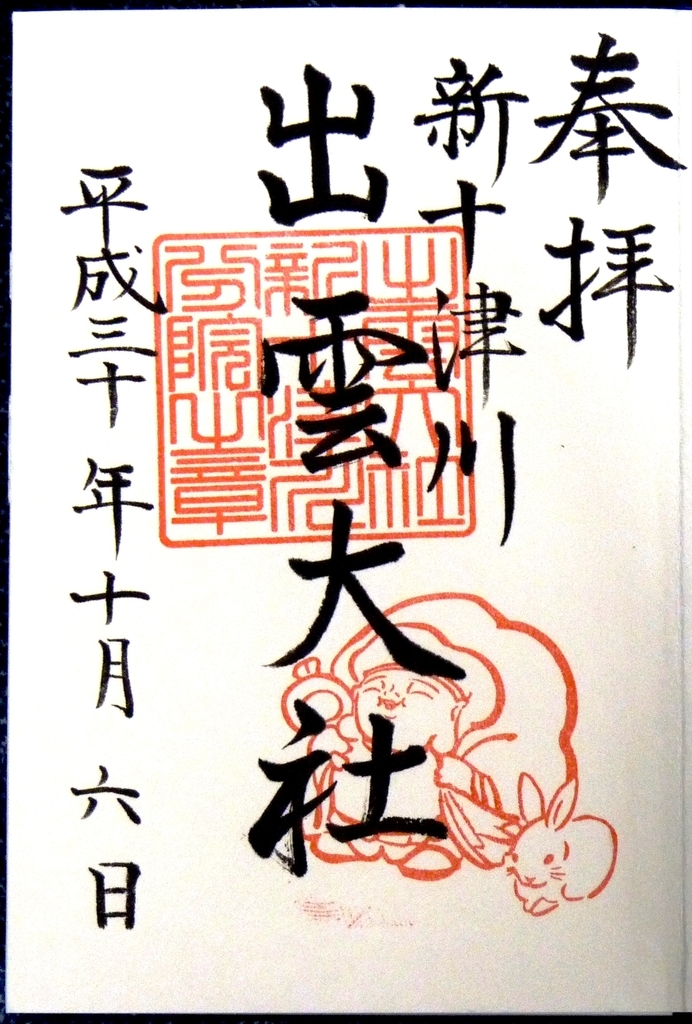 奉拝
新十津川
出雲大社
平成三十年十月六日
出雲大社
新十津川
分院之章